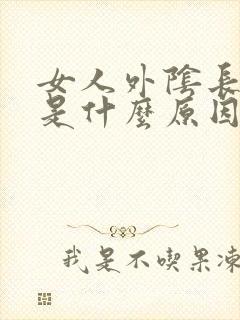 女人外陰長
是什麼原因
我是不喫果凍